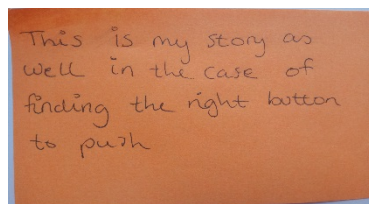 This is my story as
well in the case of
finding the right button
to push